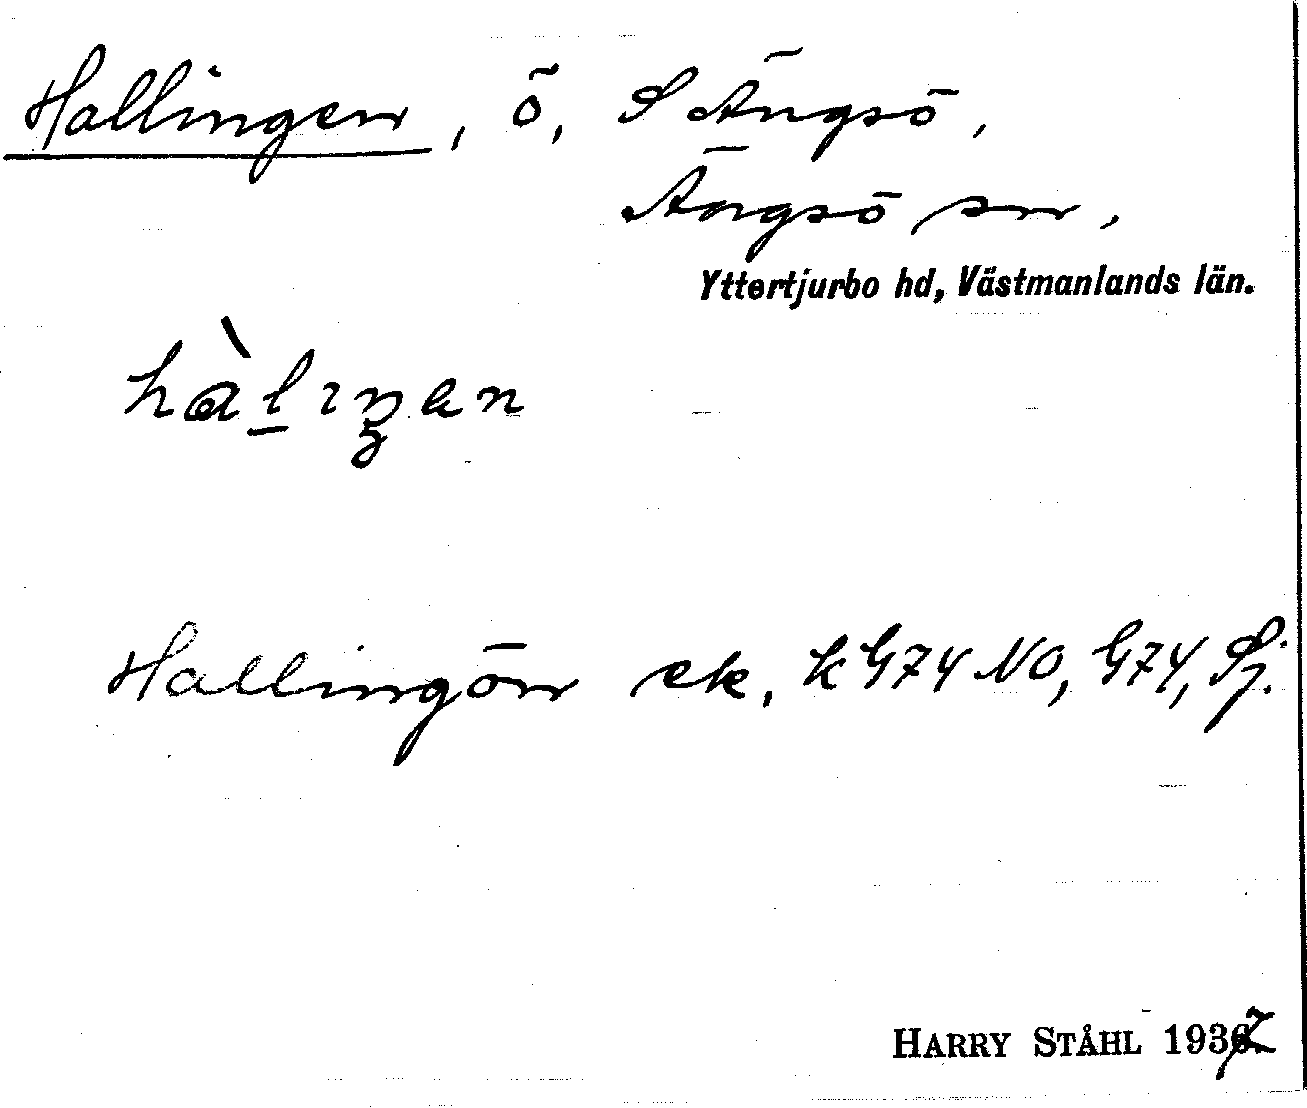 Hallingen, ö, S Ängsö,
Ängsö sn,
Yttertjurbo hd, Västmanlands län.
hàlıŋen
Hallingön ek, k G74 NO, G74, Sj.
HARRY STÅHL 1937